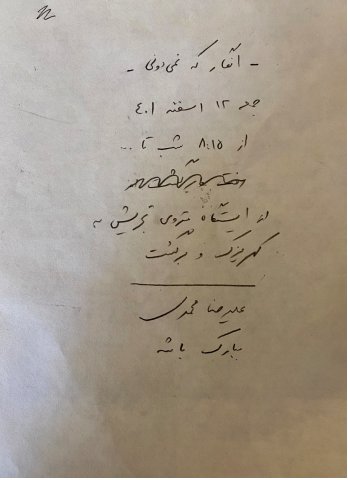 - آنقدر که نمی‌دونی -
جمعه ۱۲ اسفند ۴۰۱
از ۸:۱۵ شب تا ...
از ایستگاه متروی تجریش به
کهریزک و برگشت
علیرضا محمدی
مبارک باشه